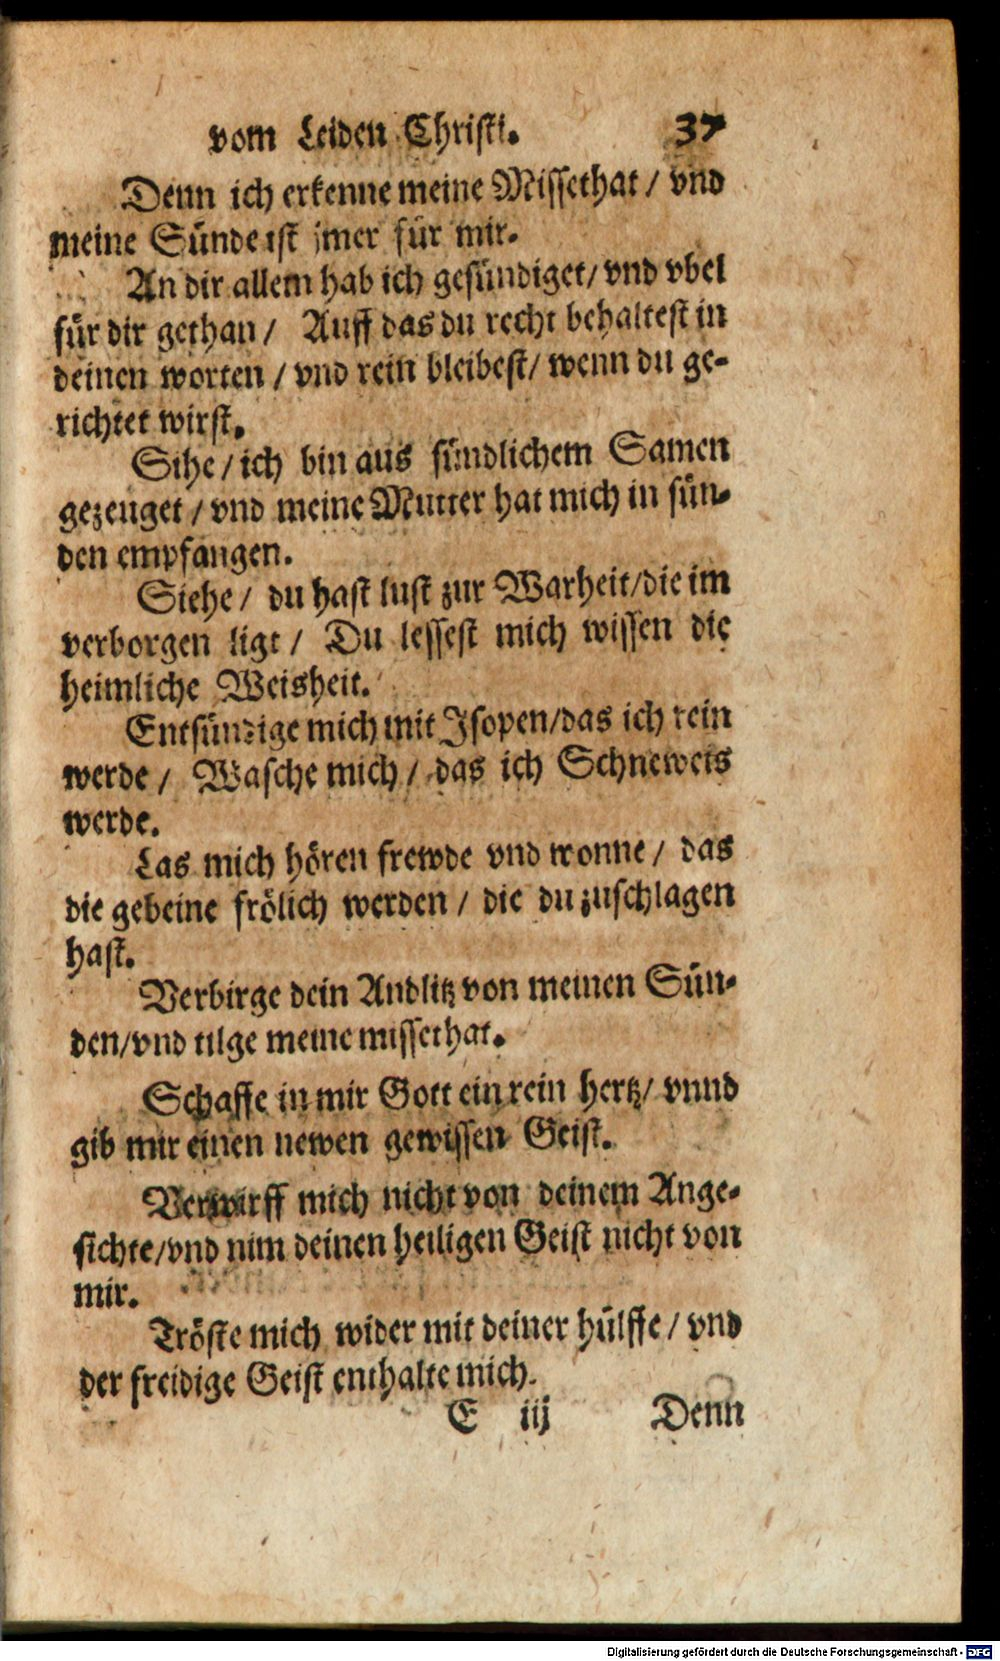 vom Leiden Christi. 37
Denn ich erkenne meine Missethat / vnd
meine Sünde ist jmer für mir.
An dir allein hab ich gesündiget / vnd vbel
für dir gethan / Auff das du recht behaltest in
deinen worten / vnd rein bleibest / wenn du ge-
richtet wirst.
Sihe / ich bin aus sündlichem Samen
gezeuget / vnd meine Mutter hat mich in sün-
den empfangen.
Siehe / du hast lust zur Warheit / die im
verborgen ligt / Du lessest mich wissen die
heimliche Weisheit.
Entsündige mich mit Jsopen / das ich rein
werde / Wasche mich / das ich Schneweis
werde.
Las mich hören frewde vnd wonne / das
die gebeine frölich werden / die du zuschlagen
hast.
Verbirge dein Andlitz von meinen Sün-
den / vnd tilge meine missethat.
Schaffe in mir Gott ein rein hertz / vnnd
gib mir einen newen gewissen Geist.
Verwirff mich nicht von deinem Ange-
sichte / vnd nim deinen heiligen Geist nicht von
mir.
Tröste mich wider mit deiner hülffe / vnd
der freidige Geist enthalte mich.
E iij Denn
Digitalisierung gefördert durch die Deutsche Forschungsgemeinschaft - DFG